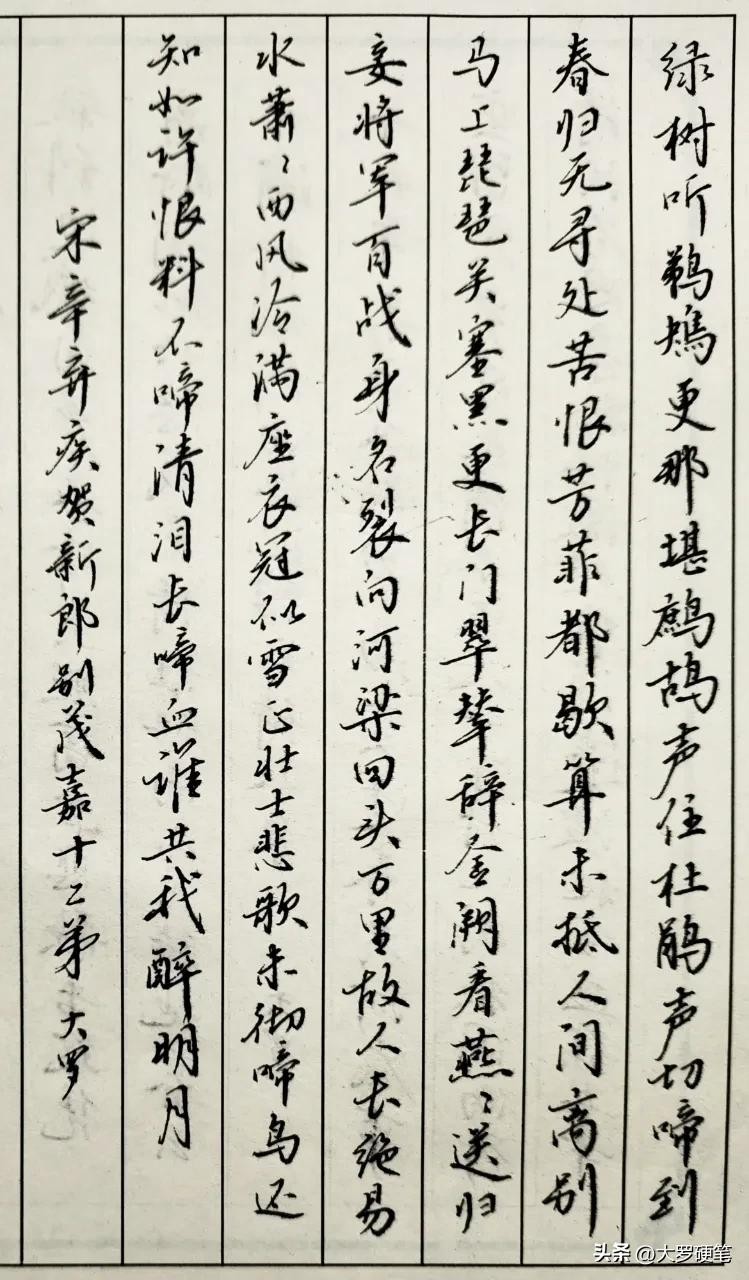 绿树听鹈鴂更那堪鹧鸪声住杜鹃声切啼到
春归无寻处苦恨芳菲都歇算未抵人间离别
马上琵琶关塞黑更长门翠辇辞金阙看燕〻送归
妾将军百战身名裂向河梁回头万里故人长绝易
水萧〻西风冷满座衣冠似雪正壮士悲歌未彻啼鸟还
知如许恨料不啼清泪长啼血谁共我醉明月
宋辛弃疾贺新郎别茂嘉十二弟 大罗
头条 @大罗硬笔